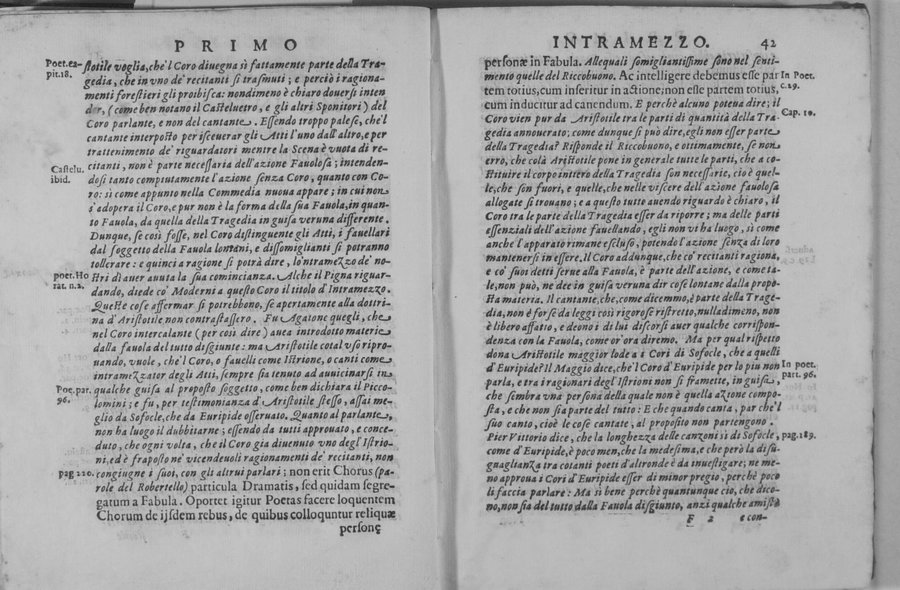 PRIMO
Poet. ca-
pit. 18.
stotile voglia, che'l Coro diuegna sì fattamente parte della Tra-
gedia, che in vno de' recitanti si trasmuti; e perciò i ragiona-
menti forestieri gli proibisca: nondimeno è chiaro douersi inten
der, (come ben notano il Casteluetro, e gli altri Sponitori) del
Coro parlante, e non del cantante. Essendo troppo palese, che'l
cantante interposto per isceuerar gli Atti l'uno dall'altro, e per
trattenimento de' riguardatori mentre la Scena è vuota di re-
Castelu.
ibid.
citanti, non è parte necessaria dell'azione Fauolosa; intenden-
dosi tanto compiutamente l'azione senza Coro, quanto con Co-
ro: sì come appunto nella Commedia nuoua appare; in cui non
s'adopera il Coro, e pur non è la forma della sua Fauola, in quan-
to Fauola, da quella della Tragedia in guisa veruna differente.
Dunque, se così fosse, nel Coro distinguente gli Atti, i fauellari
dal soggetto della Fauola lontani, e dissomiglianti si potranno
tollerare: e quinci a ragione si potrà dire, lo'ntramezzo de' no-
poet. Ho
rat. n. 2.
stri dì auer auuta la sua comincianza. Alche il Pigna riguar-
dando, diede co' Moderni a questo Coro il titolo d'Intramezo.
Queste cose affermar si potrebbono, se apertamente alla dottri-
na d'Aristotile non contrastassero. Fu Agatone quegli, che
nel Coro intercalante (per così dire) auea introdotto materie
dalla fauola del tutto disgiunte: ma Aristotile cotal vso ripro-
uando, vuole, che'l Coro, o fauelli come Istrione, o canti come
intramezzator degli Atti, sempre sia tenuto ad auuicinarsi in
Poe. par.
96.
qualche guisa al proposto soggetto, come ben dichiara il Picco-
lomini; e fu, per testimonianza d'Aristotile stesso, assai me-
glio da Sofocle, che da Euripide osseruato. Quanto al parlante,
non ha luogo il dubbitarne; essendo da tutti approuato, e conce-
duto, che ogni volta, che il Coro gia diuenuto vno degl'Istrio-
ni, ed è fraposto ne' vicendeuoli ragionamenti de' recitanti, non
pag 220.
congiugne i suoi, con gli altrui parlari; non erit Chorus (pa-
role del Robertello) particula Dramatis, sed quidam segre-
gatum a Fabula. Oportet igitur Poetas facere loquentem
Chorum de ijsdem rebus, de quibus colloquntur reliquæ
personę
INTRAMEZZO. 42
personæ in Fabula. Allequali somigliantissime sono nel senti-
mento quelle del Riccobuono. Ac intelligere debemus esse par
In Poet.
c. 19.
tem totius, cum inseritur in actione; non esse partem totius,
cum inducitur ad canendum. E perchè alcuno poteua dire; il
Cap. 10.
Coro vien pur da Aristotile tra le parti di quantità della Tra-
gedia annouerato; come dunque si può dire, egli non esser parte
della Tragedia? Risponde il Riccobuono, e ottimamente, se non
erro, che colà Aristotile pone in generale tutte le parti, che a co-
stituire il corpo intero della Tragedia son necessarie, cioè quel-
le, che son fuori, e quelle, che nelle viscere dell'azione fauolosa
allogate si trouano; e a questo tutte auendo riguardo è chiaro, il
Coro tra le parte della Tragedia esser da riporre; ma delle parti
essenziali dell'azione fauellando, egli non vi ha luogo, sì come
anche l'apparato rimane escluso, potendo l'azione senza di loro
mantenersi in essere. Il Coro addunque, che co' recitanti ragiona,
e co' suoi detti serue alla Fauola, è parte dell'azione, e come ta-
le, non può, ne dee in guisa veruna dir cose lontane dalla propo-
sta materia. Il cantante, che, come dicemmo, è parte della Trage-
dia, non è forse da leggi così rigorose ristretto, nulladimeno, non
è libero affatto, e deono i di lui discorsi auer qualche corrispon-
denza con la Fauola, come or'ora diremo. Ma per qual rispetto
dona Aristotile maggior lode a i Cori di Sofocle, che a quelli
In poet.
part. 96.
d'Euripide? Il Maggio dice, che'l Coro d'Euripide per lo più non
parla, e tra i ragionari degl'Istrioni non si framette, in guisa,
che sembra vna persona della quale non è quella azione compo-
sta, e che non sia parte del tutto: E che quando canta, par che'l
suo canto, cioè le cose cantate, al proposito non partengono.
pag. 189.
Pier Vittorio dice, che la longhezza delle canzoni sì di Sofocle,
come d'Euripide, è poco men, che la medesima, e che però la disu-
guaglianza tra cotanti poeti d'altronde è da inuestigare; ne me-
no approua i Cori d'Euripide esser di minor pregio, perchè poco
li faccia parlare: Ma sì bene perchè quantunque ciò, che dico-
no, non sia del tutto dalla Fauola disgiunto, anzi qualche amistà
F 2 e con-